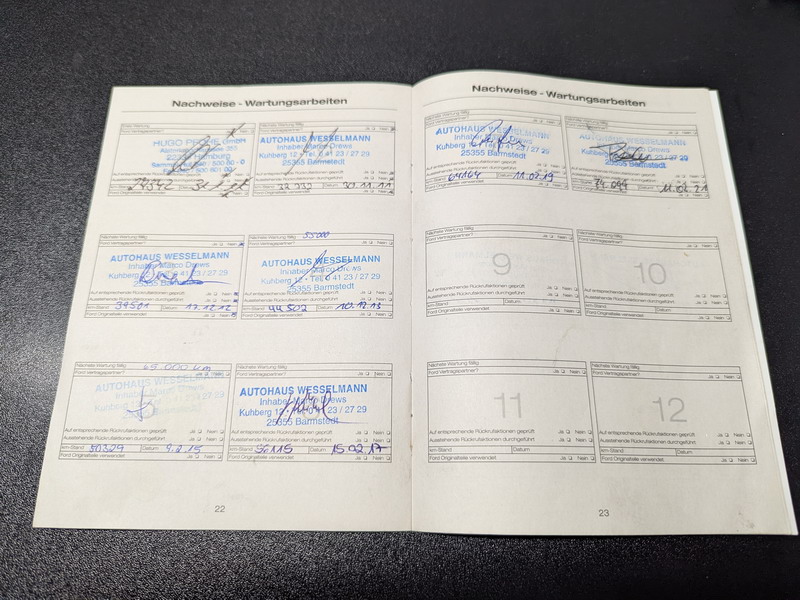 Nachweise - Wartungsarbeiten
Erste Wartung
Ford Vertragspartner? Ja Nein
HUGO PFOHE GmbH
Hamburg
km-Stand Datum
Ford Originalteile verwendet Ja Nein
Nächste Wartung fällig
Ford Vertragspartner? Ja Nein
AUTOHAUS WESSELMANN
Inhaber Marco Drews
Kuhberg 12 • Tel. 0 41 23 / 27 29
25355 Barmstedt
Auf entsprechende Rückrufaktionen geprüft Ja Nein
Ausstehende Rückrufaktionen durchgeführt Ja Nein
km-Stand 32 332 Datum 30.11.11
Ford Originalteile verwendet Ja Nein
Nächste Wartung fällig
Ford Vertragspartner? Ja Nein
AUTOHAUS WESSELMANN
Inhaber Marco Drews
Kuhberg 12 • Tel. 0 41 23 / 27 29
25355 Barmstedt
Auf entsprechende Rückrufaktionen geprüft Ja Nein
Ausstehende Rückrufaktionen durchgeführt Ja Nein
km-Stand 39501 Datum 17.12.12
Ford Originalteile verwendet Ja Nein
Nächste Wartung fällig 55000
Ford Vertragspartner? Ja Nein
AUTOHAUS WESSELMANN
Inhaber Marco Drews
Kuhberg 12 • Tel. 0 41 23 / 27 29
25355 Barmstedt
Auf entsprechende Rückrufaktionen geprüft Ja Nein
Ausstehende Rückrufaktionen durchgeführt Ja Nein
km-Stand 44502 Datum 10.12.13
Ford Originalteile verwendet Ja Nein
Nächste Wartung fällig 65.000 km
Ford Vertragspartner? Ja Nein
AUTOHAUS WESSELMANN
Auf entsprechende Rückrufaktionen geprüft Ja Nein
Ausstehende Rückrufaktionen durchgeführt Ja Nein
km-Stand 50329 Datum 9.2.15
Ford Originalteile verwendet Ja Nein
Nächste Wartung fällig
Ford Vertragspartner? Ja Nein
AUTOHAUS WESSELMANN
Inhaber Marco Drews
Kuhberg 12 • Tel. 0 41 23 / 27 29
25355 Barmstedt
Auf entsprechende Rückrufaktionen geprüft Ja Nein
Ausstehende Rückrufaktionen durchgeführt Ja Nein
km-Stand 56115 Datum 15.02.17
Ford Originalteile verwendet Ja Nein
22
Nachweise - Wartungsarbeiten
AUTOHAUS WESSELMANN
Inhaber Marco Drews
Kuhberg 12 • Tel. 0 41 23 / 27 29
25355 Barmstedt
Auf entsprechende Rückrufaktionen geprüft Ja Nein
Ausstehende Rückrufaktionen durchgeführt Ja Nein
km-Stand 64164 Datum 11.02.19
Ford Originalteile verwendet Ja Nein
Nächste Wartung fällig
Ford Vertragspartner? Ja Nein
AUTOHAUS WESSELMANN
25355 Barmstedt
Auf entsprechende Rückrufaktionen geprüft Ja Nein
Ausstehende Rückrufaktionen durchgeführt Ja Nein
km-Stand Datum 11.02.21
Ford Originalteile verwendet Ja Nein
Nächste Wartung fällig
Ford Vertragspartner? Ja Nein
9
Auf entsprechende Rückrufaktionen geprüft Ja Nein
Ausstehende Rückrufaktionen durchgeführt Ja Nein
km-Stand Datum
Ford Originalteile verwendet Ja Nein
Nächste Wartung fällig
Ford Vertragspartner? Ja Nein
10
Auf entsprechende Rückrufaktionen geprüft Ja Nein
Ausstehende Rückrufaktionen durchgeführt Ja Nein
km-Stand Datum
Ford Originalteile verwendet Ja Nein
Nächste Wartung fällig
Ford Vertragspartner? Ja Nein
11
Auf entsprechende Rückrufaktionen geprüft Ja Nein
Ausstehende Rückrufaktionen durchgeführt Ja Nein
km-Stand Datum
Ford Originalteile verwendet Ja Nein
Nächste Wartung fällig
Ford Vertragspartner? Ja Nein
12
Auf entsprechende Rückrufaktionen geprüft Ja Nein
Ausstehende Rückrufaktionen durchgeführt Ja Nein
km-Stand Datum
Ford Originalteile verwendet Ja Nein
23